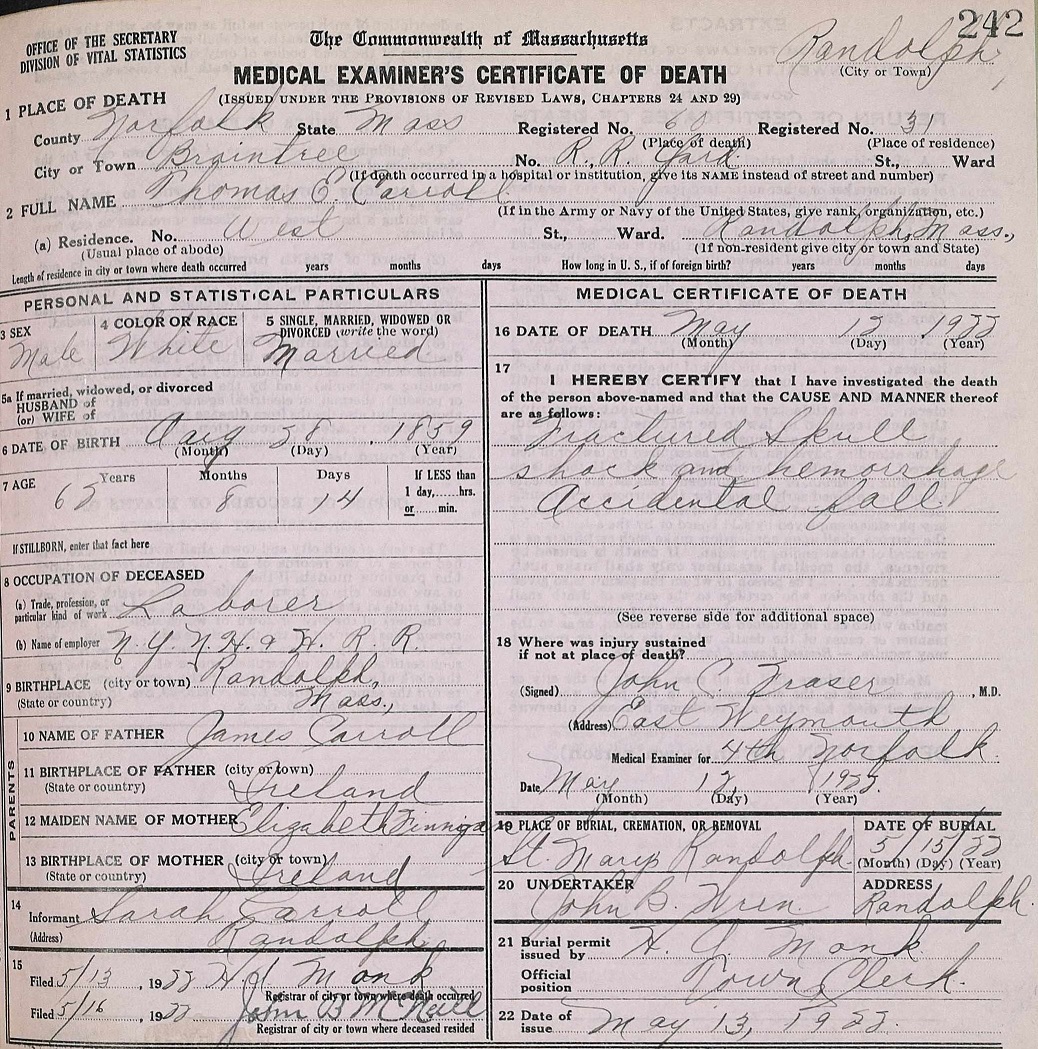 242
OFFICE OF THE SECRETARY
DIVISION OF VITAL STATISTICS
The Commonwealth of Massachusetts
Randolph
(City or Town)
MEDICAL EXAMINER'S CERTIFICATE OF DEATH
(ISSUED UNDER THE PROVISIONS OF REVISED LAWS, CHAPTERS 24 AND 29)
1 PLACE OF DEATH
County Norfolk State Mass Registered No. Registered No. 31
(Place of death) (Place of residence)
City or Town Braintree No. R.R. Yard St., Ward
(If death occurred in a hospital or institution, give its NAME instead of street and number)
2 FULL NAME Thomas E. Carroll
(If in the Army or Navy of the United States, give rank, organization, etc.)
(a) Residence. No. West St., Ward. Randolph, Mass.,
(Usual place of abode) (If non-resident give city or town and State)
Length of residence in city or town where death occurred years months days How long in U. S., if of foreign birth? years months days
PERSONAL AND STATISTICAL PARTICULARS
3 SEX
Male
4 COLOR OR RACE
White
5 SINGLE, MARRIED, WIDOWED OR
DIVORCED (write the word)
Married
5a If married, widowed, or divorced
HUSBAND of
(or) WIFE of
6 DATE OF BIRTH Aug 28, 1859
(Month) (Day) (Year)
7 AGE Years Months Days If LESS than
62 8 14 1 day,......hrs.
or......min.
If STILLBORN, enter that fact here
8 OCCUPATION OF DECEASED
(a) Trade, profession, or
particular kind of work Laborer
(b) Name of employer N.Y. N.H. & H. R.R.
9 BIRTHPLACE (city or town) Randolph,
(State or country) Mass.,
PARENTS
10 NAME OF FATHER James Carroll
11 BIRTHPLACE OF FATHER (city or town)
(State or country) Ireland
12 MAIDEN NAME OF MOTHER Elizabeth Finnigan
13 BIRTHPLACE OF MOTHER (city or town)
(State or country) Ireland
14
Informant Sarah Carroll
(Address) Randolph
15
Filed 5/13, 1922 H. J. Monk
Registrar of city or town where death occurred
Filed 5/16, 1922 John B McNeill
Registrar of city or town where deceased resided
MEDICAL CERTIFICATE OF DEATH
16 DATE OF DEATH May 12, 1922
(Month) (Day) (Year)
17
I HEREBY CERTIFY that I have investigated the death
of the person above-named and that the CAUSE AND MANNER thereof
are as follows:
Fractured Skull
shock and hemorrhage
Accidental fall
(See reverse side for additional space)
18 Where was injury sustained
if not at place of death?
(Signed) John C. Fraser, M.D.
(Address) East Weymouth
Medical Examiner for 4th Norfolk
Date May 12, 1922.
(Month) (Day) (Year)
19 PLACE OF BURIAL, CREMATION, OR REMOVAL
St. Mary's Randolph
DATE OF BURIAL
5/15/22
(Month) (Day) (Year)
20 UNDERTAKER
John B. Wren
ADDRESS
Randolph.
21 Burial permit
issued by H. J. Monk
Official
position Town Clerk.
22 Date of
issue May 13, 1922.